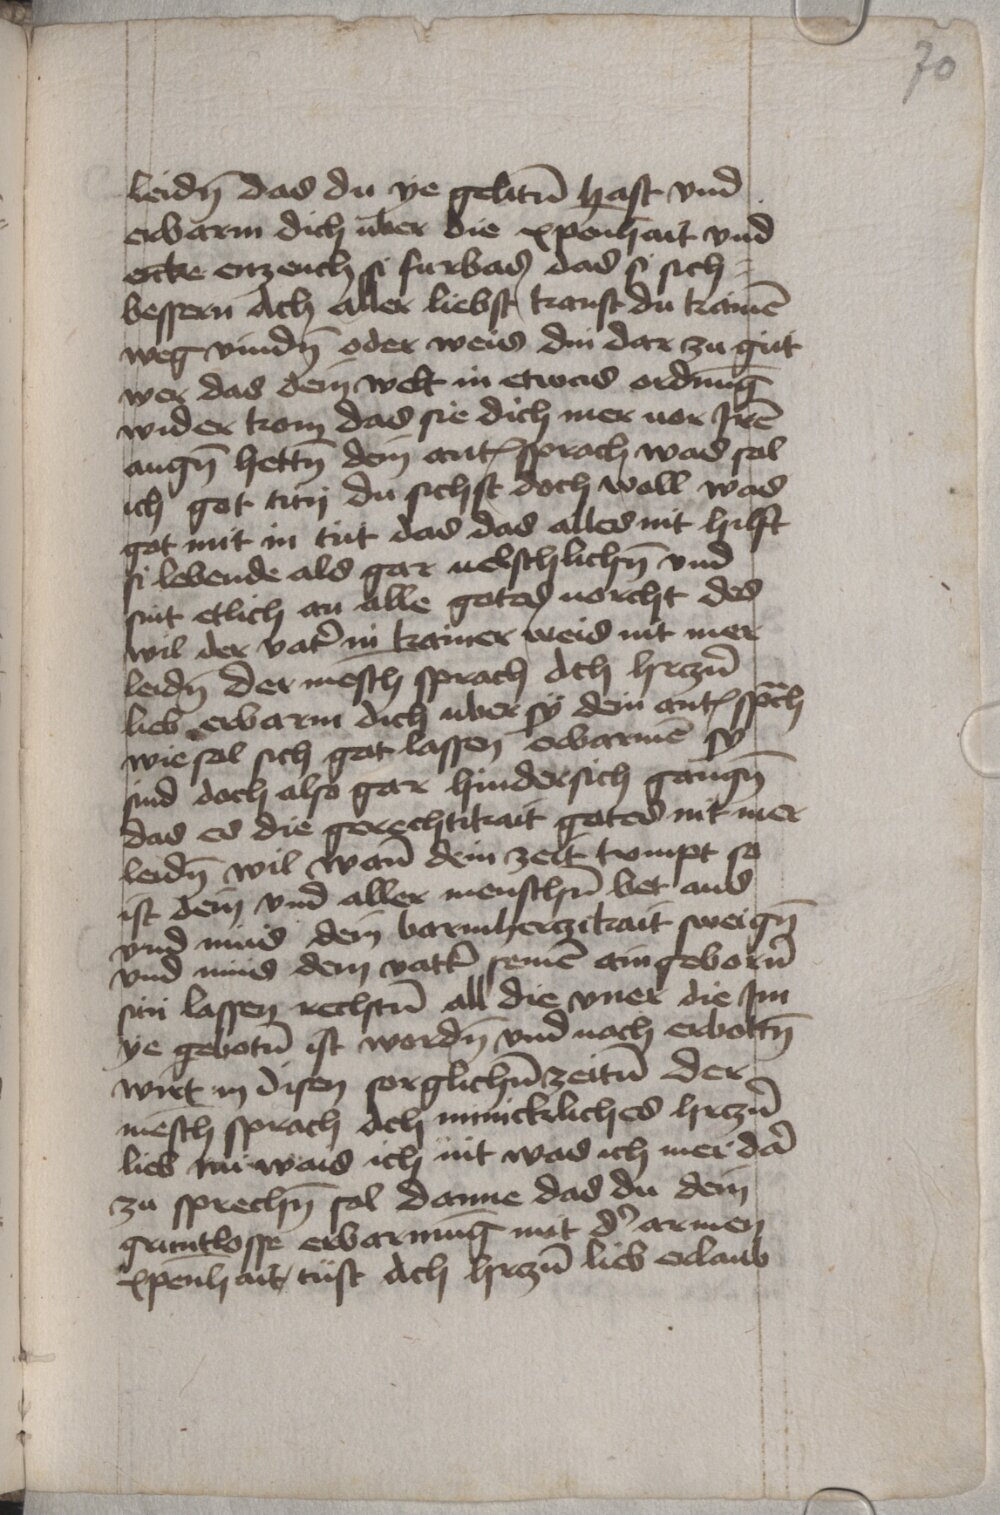 70
leidn̄ das du ye gelitn̄ hast vnd
erbarm dich über die xpenhait vnd
erzeuch si furbas das si sich
bessern Ach aller liebst kanst du kainē
weg vindn̄ oder weis din dar zu gůt
wer das dein welt in etwas ordnūg
wider kom das sie dich mer uor Jrē
augn̄ hettn̄ dein ant sprach was sol
ich got tůn du sichst doch woll was
got mit in tůt das das alles nit hilft
si lebende als gar uelschlichn̄ vnd
sint etlich an alle gotes uorcht des
wil der vat͛ in kainer weis nit mer
leidn̄ Der mēsch sprach Ach hrczn̄
lieb erbarm dich uber sy dein ant spͣch
wie sol sich got lassen erbarmē sy
sind doch also gar hindersich gangn̄
das es die gerechtikait gotes nit mer
leidn̄ wil wan̄ dein zeit kumpt so
ist dein vnd aller menschn̄ bet aus
vnd mus dein barmherczikait sweign̄
vnd mus dem vatt͛ seinē aingeborn̄
sun lassen rechtn̄ all die vner die Jm
ye gebotn̄ ist wordn̄ vnd noch erbottn̄
wirt in disen sorglichn̄ zeitn̄ Der
mēsch sprach Ach minickliches hrczn̄
lieb nu wais ich nit was ich mer da͛
zu sprechn̄ sol danne das du dein
gruntlosse erbarmūg mit d͛ armen
xpenhait tůst Ach hrczn̄ lieb erlaub